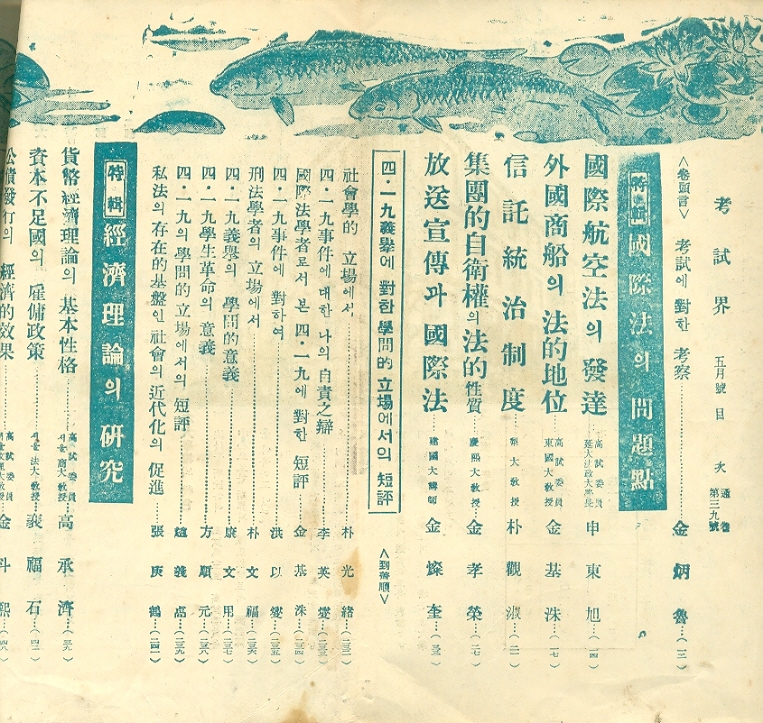 考試界 五月號 目次 通卷 第三九號
＜卷頭言＞ 考試에 對한 考察 金炳魯
特輯 國際法의 問題點
國際航空法의 發達 高試委員 申東旭
外國商船의 法的地位 高試委員 東國大敎授 金基洙
信託統治制度 大敎授 朴觀淑
集團的自衛權의 法的性質 慶熙大敎授 金孝榮
放送宣傳과 國際法 建國大講師 金燦奎
四·一九義擧에 對한 學問的 立場에서의 短評 ＜到着順＞
社會學的 立場에서 朴光緖
四·一九事件에 대한 나의 自責之辯 李英燮
國際法學者로서 본 四·一九에 對한 短評 金基洙
四·一九事件에 對하여 洪以燮
刑法學者의 立場에서 朴文福
四·一九義擧의 學問的意義 康文用
四·一九學生革命의 意義 方順元
四·一九의 學問的立場에서의 短評
私法의 存在的基盤인 社會의 近代化의 促進 張庚鶴（二四一）
特輯 經濟理論의 硏究
貨幣經濟理論의 基本性格 高試委員 서울商大敎授 高承濟
資本不足國의 雇傭政策 서울法大敎授 裵福石
公債發行의 經濟的效果 高試委員 金斗熙